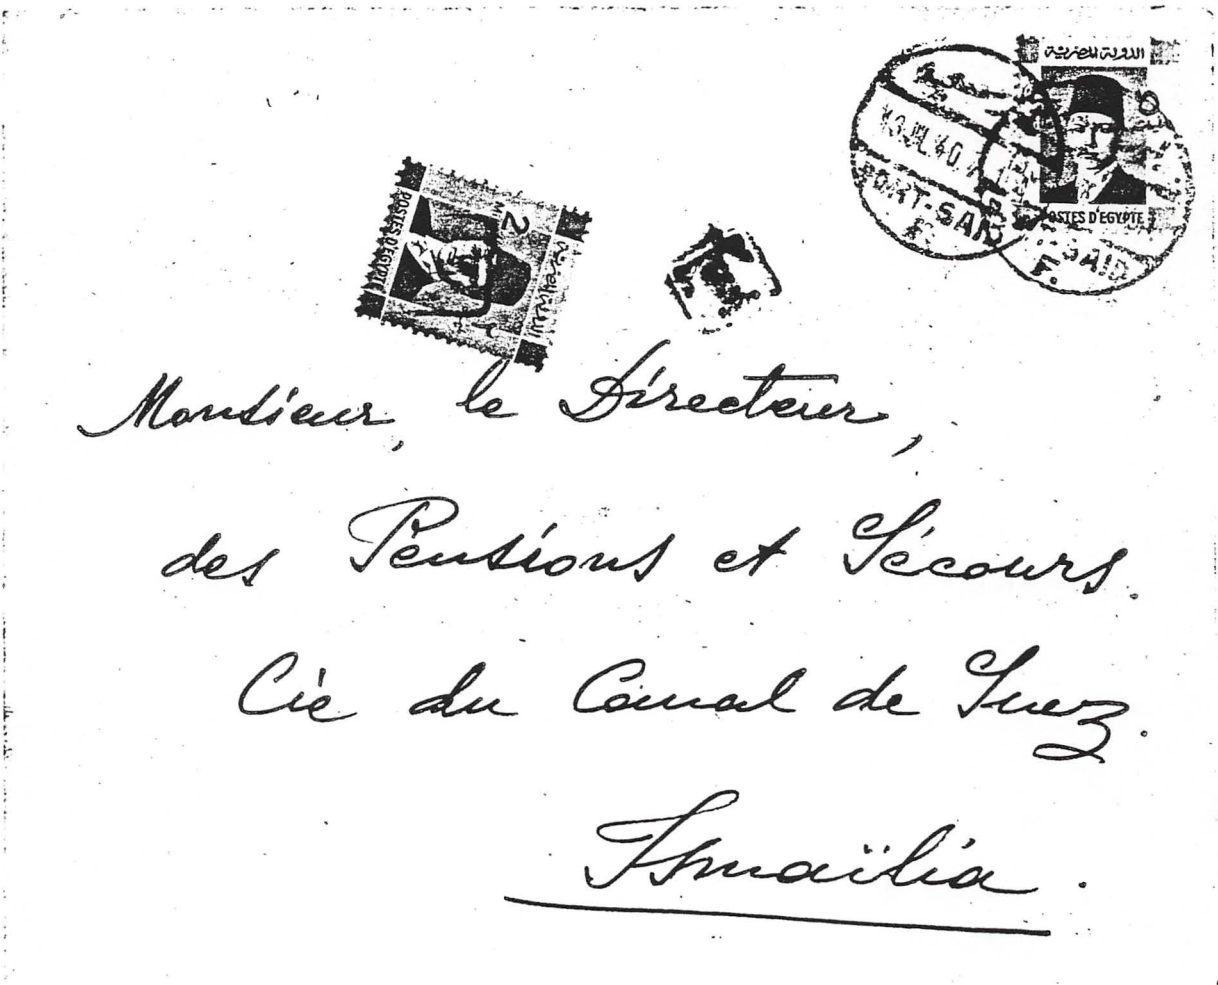 الدولة المصرية
٥
POSTES D'EGYPTE
13.JL.40.
PORT-SAID
F.
SAID
F.
2
POSTES D'EGYPTE
٢
Monsieur, le Directeur,
des Pensions et Sécours.
Cie du Canal de Suez.
Ismaïlia.